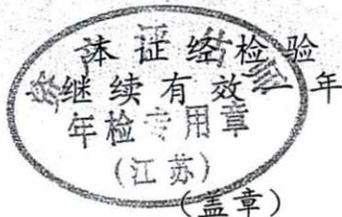 本证经检验
继续有效一年
年检专用章
(江苏)
(盖章)